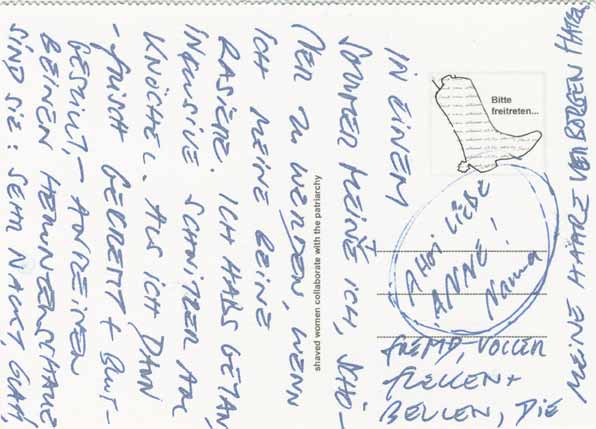 IN EINEM
SOMMER MEINTE ICH, SCHÖ-
NER ZU WERDEN, WENN
ICH MEINE BEINE
RASIERE. ICH HABS GETAN,
INKLUSIVE SCHNITZER AM
KNÖCHEL. ALS ICH DANN
- FRISCH GECREMT + BLUT-
GESTILLT, - AN MEINEN
BEINEN HERUNTERSCHAUE
SIND SIE: SEHR NACKT, GLATT,
FREMD, VOLLER
FLECKEN +
BEULEN, DIE
MEINE HAARE VERBORGEN HATTEN.
AHOI LIEBE
ANNE!
Nanna
Bitte
freitreten...
shaved women collaborate with the patriarchy